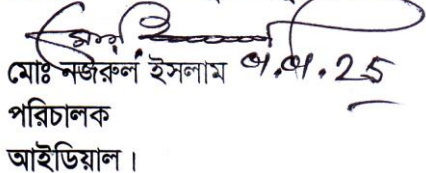 মোঃ নজরুল ইসলাম
পরিচালক
আইডিয়াল।